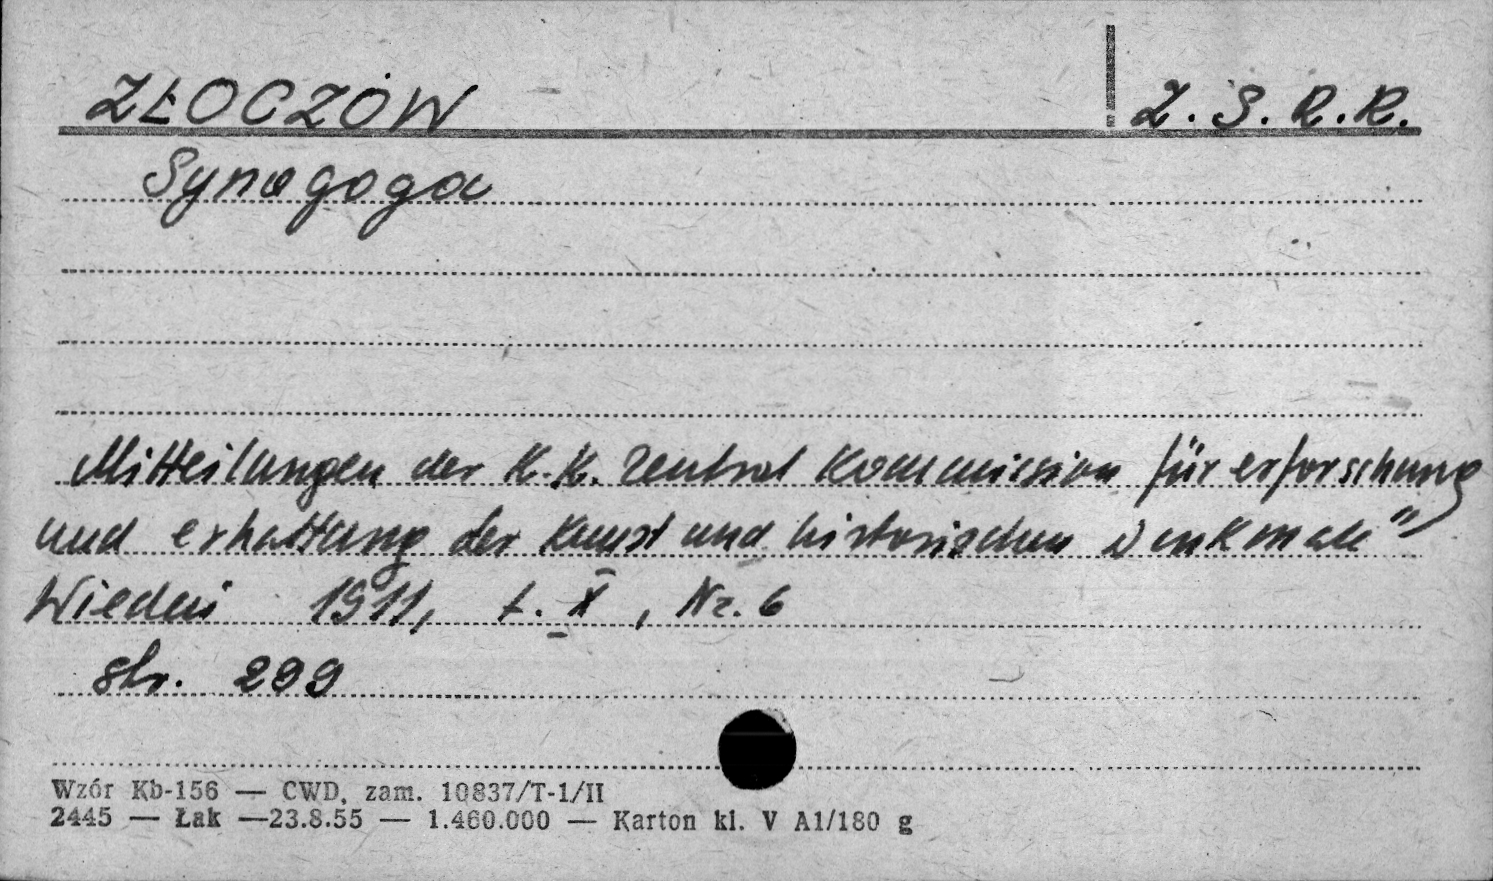 ZŁOCZÓW Z.S.R.R.
Synagoga
Mitteilungen der K.K. Zentral Kommission für erforschung
und erhaltung der Kunst und historischen Denkmale"
Wiedeń 1911, t. X, Nr. 6
str. 299
Wzór Kb-156 — CWD, zam. 10837/T-1/II
2445 — Łak —23.8.55 — 1.460.000 — Karton kl. V A1/180 g